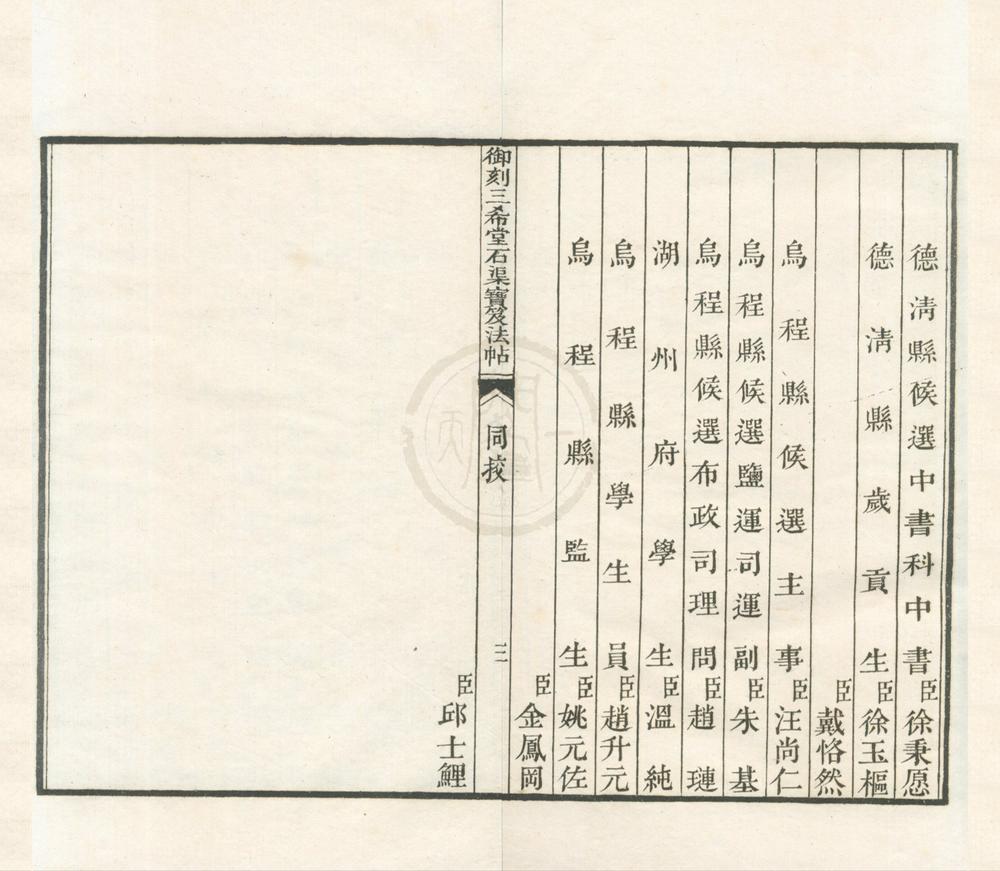 德淸縣候選中書科中書臣徐秉愿
德淸縣歲貢生臣徐玉樞
臣戴恪然
烏程縣候選主事臣汪尚仁
烏程縣候選鹽運司運副臣朱基
烏程縣候選布政司理問臣趙璉
湖州府學生臣溫純
烏程縣學生員臣趙升元
烏程縣監生臣姚元佐
臣金鳳岡
御刻三希堂石渠寶笈法帖
同挍
三
臣邱士鯉